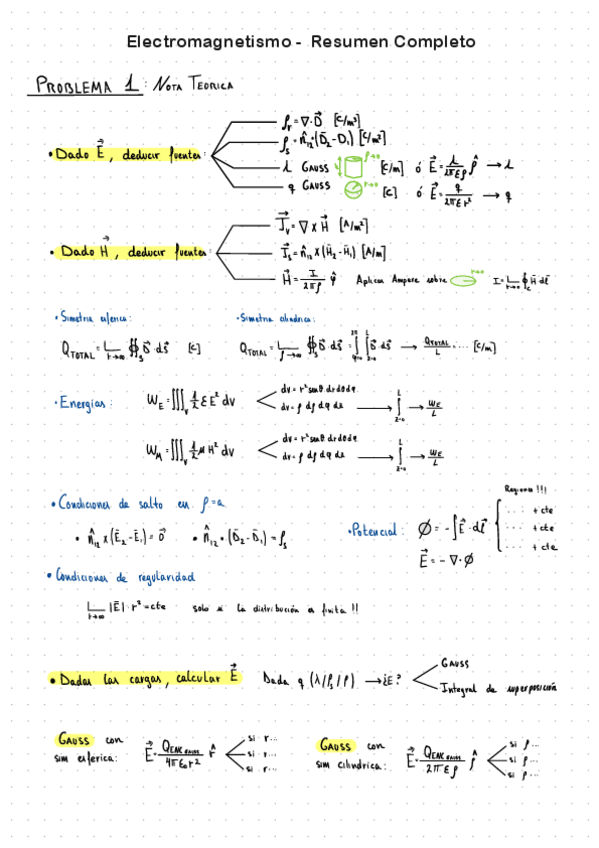 Electromagnetismo - Resumen Completo
PROBLEMA 1: NOTA TEORICA
• Dado E⃗, deducir fuentes:
ρ_v = ∇·D⃗ [C/m³]
ρ_s = n̂₁₂·(D⃗₂ - D₁) [C/m²]
λ GAUSS ρ→0 [C/m] ó E⃗ = λ/2περ ρ̂ → λ
q GAUSS r→0 [C] ó E⃗ = q/2πεr² → q
• Dado H⃗, deducir fuentes:
J⃗_v = ∇ × H⃗ [A/m²]
J⃗_s = n̂₁₂ × (H̄₂ - H̄₁) [A/m]
H⃗ = I/2πρ φ̂ Aplicar Ampere sobre r→0 I = L_{r→0} ∮_c H̄·dl̄
• Simetria esferica:
• Simetria cilindrica:
Q_TOTAL = L_{r→∞} ∯_S D̄·ds̄ [C]
Q_TOTAL = L_{ρ→∞} ∯_S D̄·ds̄ = ∫_{φ=0}^{2π} ∫_{z=0}^{L} D̄·ds̄ → Q_TOTAL/L = .... [C/m]
• Energias:
W_E = ∭_V 1/2 ε E² dv
dv = r² senθ dr dθ dφ
dv = ρ dρ dφ dz → ∫_{z=0}^{L} → W_E/L
W_M = ∭_V 1/2 μ H² dv
dv = r² senθ dr dθ dφ
dv = ρ dρ dφ dz → ∫_{z=0}^{L} → W_E/L
• Condiciones de salto en ρ=a
• n̂₁₂ × (Ē₂ - Ē₁) = 0⃗ • n̂₁₂·(D̄₂ - D̄₁) = ρ_s
• Potencial: Ø = -∫E⃗·dl⃗
Regiones !!!
.... + cte
.... + cte
.... + cte
E⃗ = -∇·Ø
• Condiciones de regularidad
L_{r→∞} |E⃗|·r² = cte solo si la distribución es finita !!
• Dadas las cargas, calcular E⃗ Dada q (λ/ρ_s/ρ) → ¿E?
GAUSS
Integral de superposición
GAUSS con
sim esferica: E⃗ = Q_ENC/4πε₀r² r̂
si r...
si r...
si r...
GAUSS con
sim cilindrica: E⃗ = Q_ENC/2περ ρ̂
si ρ...
si ρ...
si ρ...